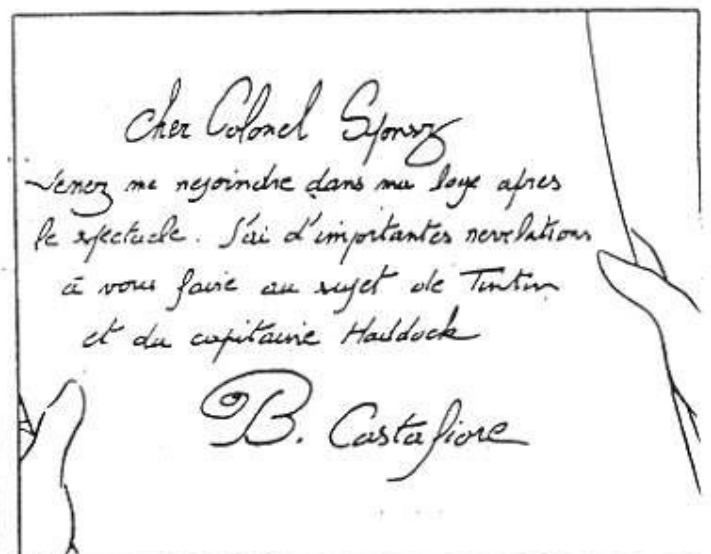 Cher Colonel Sponsz
Venez me rejoindre dans ma loge apres
le spectacle. J'ai d'importantes revelations
à vous faire au sujet de Tintin
et du capitaine Haddock
B. Castafiore